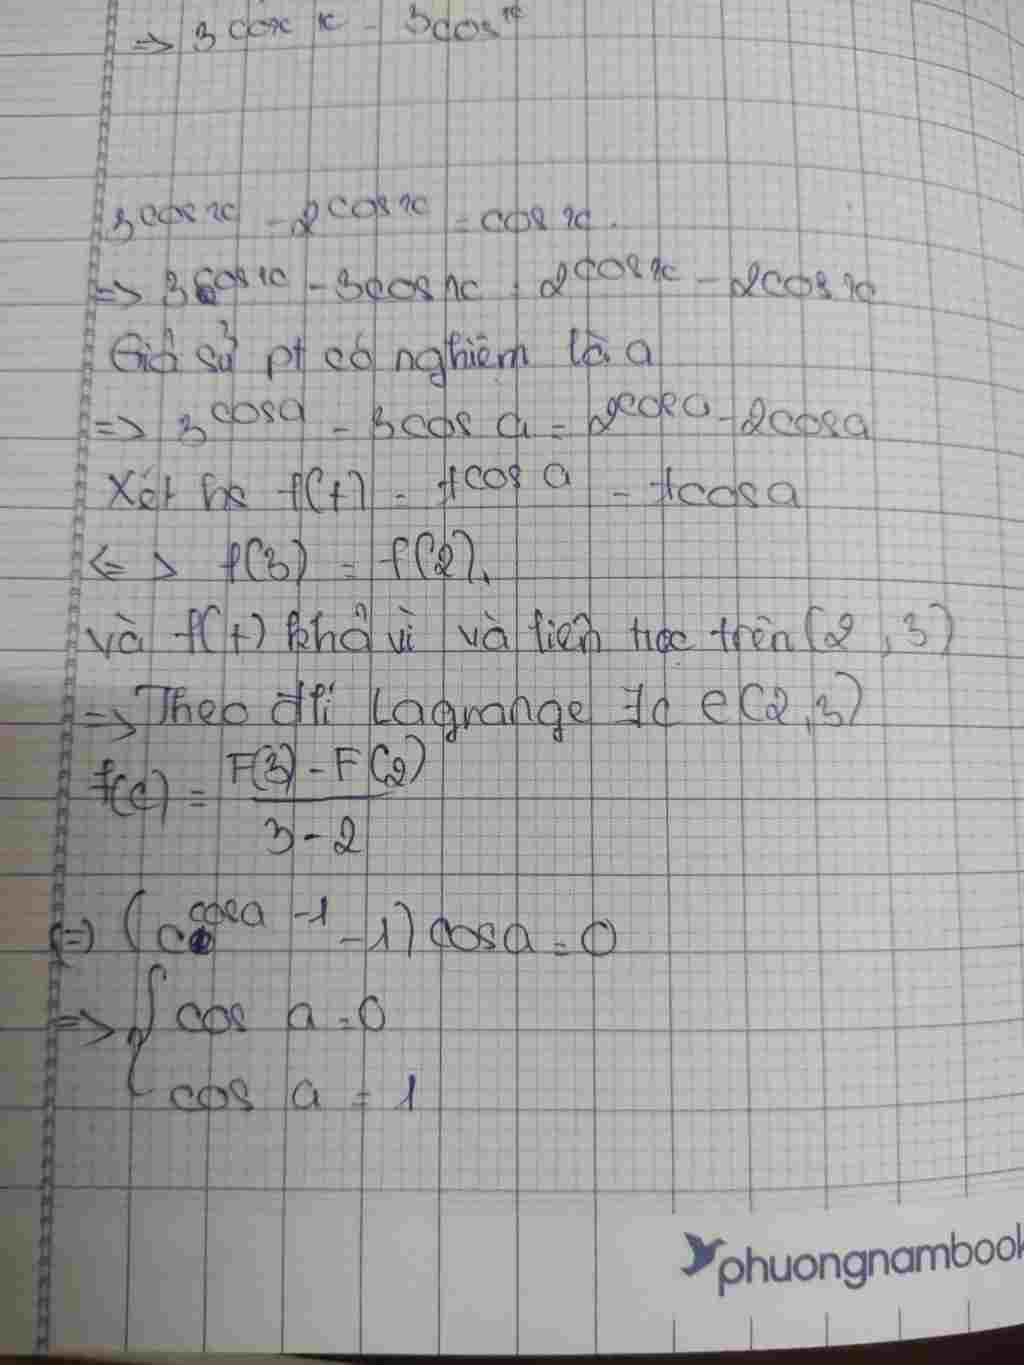 => 3^cosx - 3cosx
3^cosx - 2^cosx = cosx.
=> 3^cosx - 3cosx = 2^cosx - 2cosx
Giả sử pt có nghiệm là a
=> 3^cosa - 3cosa = 2^cosa - 2cosa
Xét hs f(t) = t^cosa - tcosa
<=> f(3) = f(2).
và f(t) khả vi và liên tục trên (2,3)
=> Theo đlí Lagrange ∃c ∈ (2,3)
f(c) = (F(3) - F(2))/(3-2)
(=) (c^cosa-1 - 1) cosa = 0
=> { cos a = 0
cos a = 1
phuongnambook